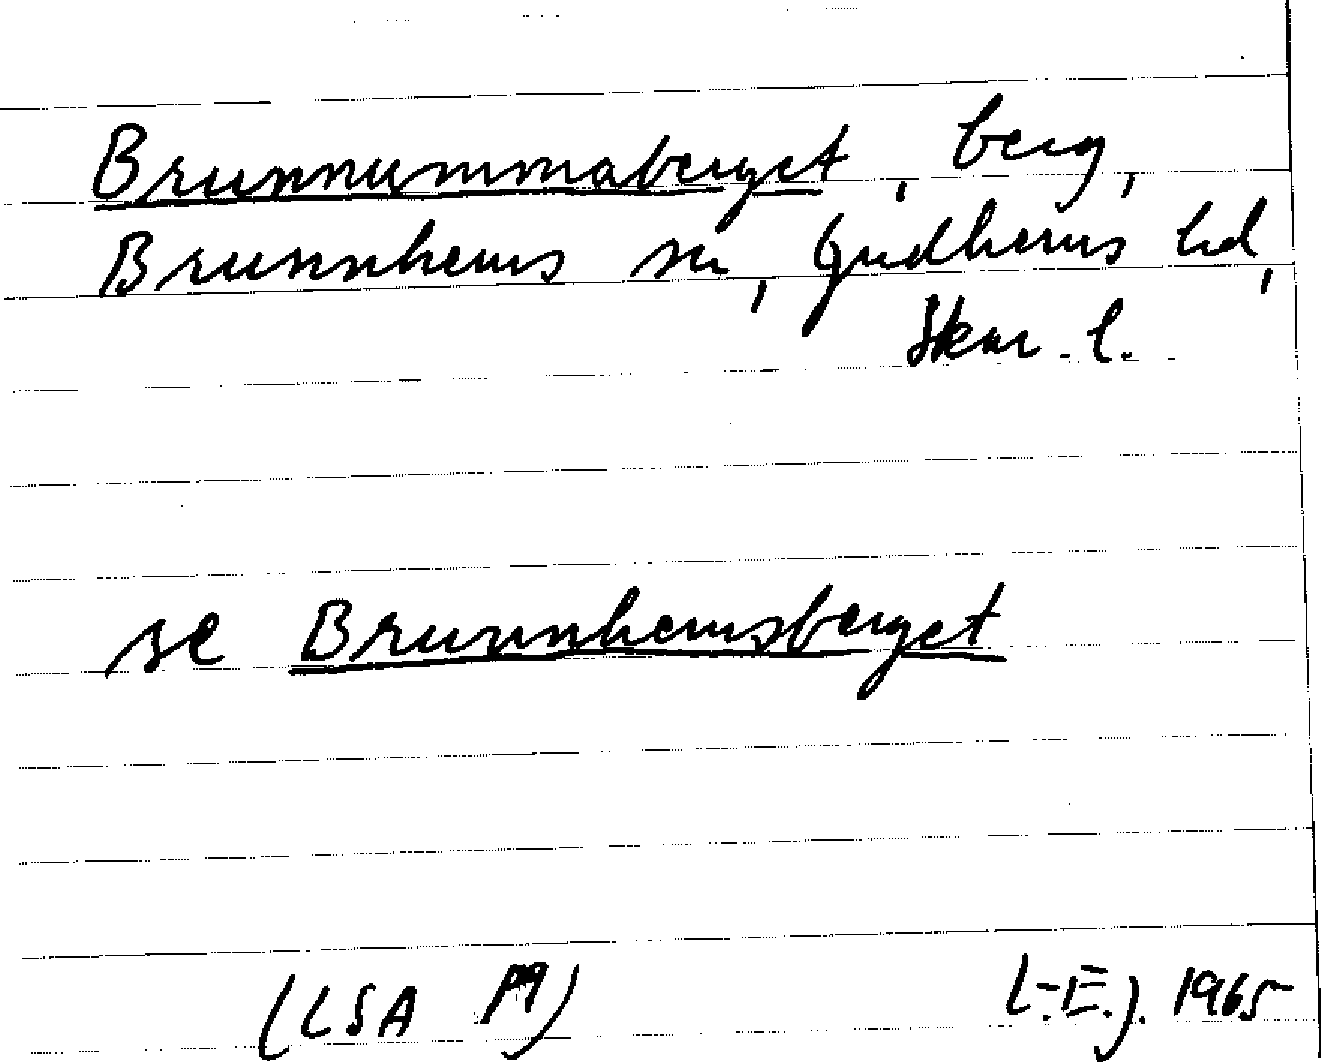 Brunnummaberget, berg,
Brunnhems sn, Gudhems hd,
Skar. l.
se Brunnhemsberget
(LSA
L-E.J. 1965